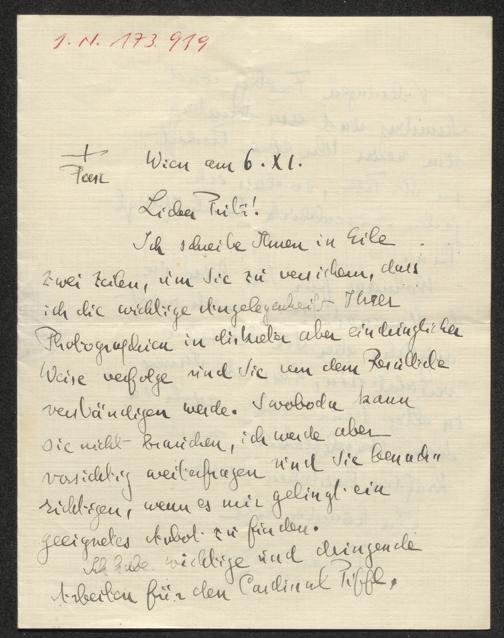 I. N. 173.919
+
Pax
Wien am 6. XI.
Lieber Fritz!
Ich schreibe Ihnen in Eile
zwei Zeilen, um Sie zu versichern, dass
ich die wichtige Angelegenheit Ihrer
Photographien in diskreter aber eindringlicher
Weise verfolge und Sie von dem Resultate
verständigen werde. Swoboda kann
sie nicht brauchen, ich werde aber
vorsichtig weiterfragen und Sie benach-
richtigen, wenn es mir gelingt ein
geeignetes Anbot zu finden.
Ich habe wichtige und dringende
Arbeiten für den Cardinal Piffl,